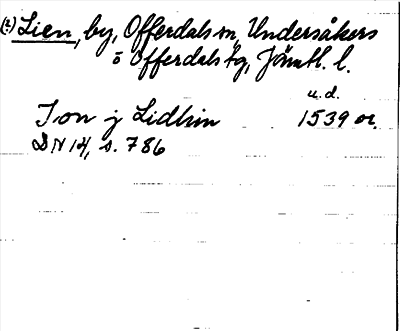 (?) Lien, by, Offerdals sn, Undersåkers
o Offerdals tg, Jämtl. l.
u.d.
Jon j Lidhin 1539 or.
DN 14, s. 786